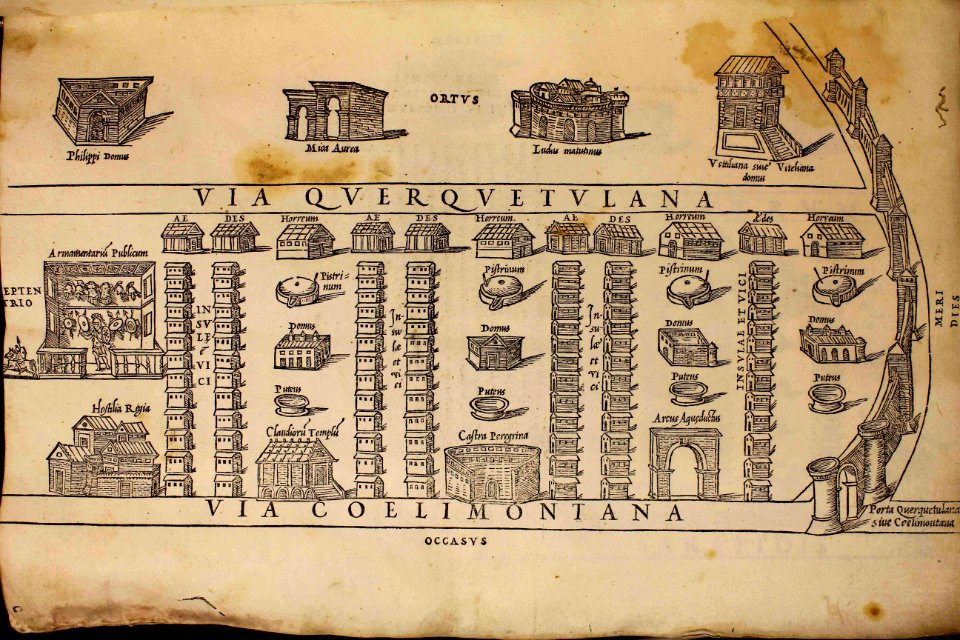 ORTVS
Philippi Domus
Mica Aurea
Ludus matutinus
Vitelliana siue Vitehana
domus
VIA QVERQVETVLANA
AE DES Horreum AE DES Horreum. AE DES Horreum Ædes Horreum
Armamentariũ Publicum
SEPTEN
TRIO
Pistri-
num
Pistrinum
Pistrinum
Pistrinum
IN
SV
LÆ
et
VI
CI
In
su
læ
et
vi
ci
In
su
læ
et
vi
ci
INSVLÆ ET VICI
MERI
DIES
Domus
Domus
Domus
Domus
Puteus
Puteus
Puteus
Puteus
Hostilia Regia
Claudiorũ Templũ
Castra Peregrina
Arcus Aquæductus
VIA COELIMONTANA
Porta Querquetulana
siue Coelimontana
OCCASVS